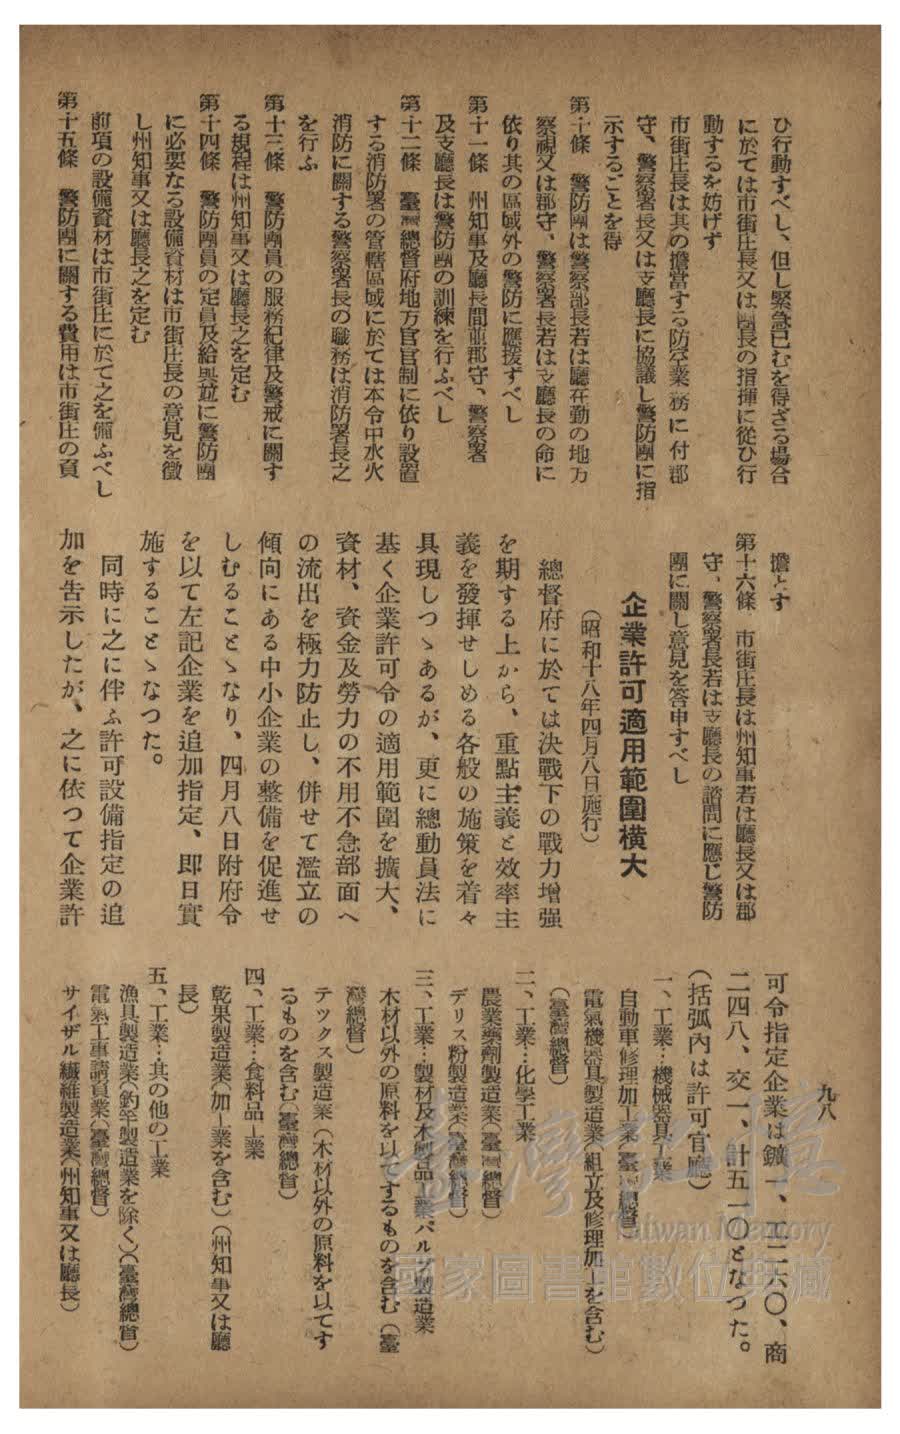 ひ行動すべし、但し緊急已むを得ざる場合
に於ては市街庄長又は團長の指揮に從ひ行
動するを妨げず
市街庄長は其の擔當する防空業務に付郡
守、警察署長又は支廳長に協議し警防團に指
示することを得
第十條 警防團は警察部長若は廳在勤の地方
警視又は郡守、警察署長若は支廳長の命に
依り其の區域外の警防に應援すべし
第十一條 州知事及廳長間並郡守、警察署
及支廳長は警防團の訓練を行ふべし
第十二條 臺灣總督府地方官官制に依り設置
する消防署の管轄區域に於ては本令中水火
消防に關する警察署長の職務は消防署長之
を行ふ
第十三條 警防團員の服務紀律及警戒に關す
る規程は州知事又は廳長之を定む
第十四條 警防團員の定員及給與竝に警防團
に必要なる設備資材は市街庄長の意見を徵
し州知事又は廳長之を定む
前項の設備資材は市街庄に於て之を備ふべし
第十五條 警防團に關する費用は市街庄の負
擔とす
第十六條 市街庄長は州知事若は廳長又は郡
守、警察署長若は支廳長の諮問に應じ警防
團に關し意見を答申すべし
企業許可適用範圍橫大
（昭和十八年四月八日施行）
總督府に於ては決戰下の戰力增强
を期する上から、重點主義と效率主
義を發揮せしめる各般の施策を着々
具現しつゝあるが、更に總動員法に
基く企業許可令の適用範圍を擴大、
資材、資金及勞力の不用不急部面へ
の流出を極力防止し、併せて濫立の
傾向にある中小企業の整備を促進せ
しむることゝなり、四月八日附府令
を以て左記企業を追加指定、卽日實
施することゝなつた。
同時に之に伴ふ許可設備指定の追
加を吿示したが、之に依つて企業許
可令指定企業は鑛一、工二六〇、商
二四八、交一、計五一〇となつた。
（括弧內は許可官廳）
一、工業…機械器具工業
自動車修理加工業（臺灣總督）
電氣機器具製造業（組立及修理加工を含む）
（臺灣總督）
二、工業…化學工業
農業藥劑製造業（臺灣總督）
デリス粉製造業（臺灣總督）
三、工業…製材及木製品工業パルプ製造業
木材以外の原料を以てするものを含む（臺
灣總督）
テツクス製造業（木材以外の原料を以てす
るものを含む）（臺灣總督）
四、工業…食料品工業
乾果製造業（加工業を含む）（州知事又は廳
長）
五、工業…其の他の工業
漁具製造業（釣竿製造業を除く）（臺灣總督）
電氣工事請負業（臺灣總督）
サイザル纎維製造業（州知事又は廳長）
九八
臺灣記憶
Taiwan Memory
國家圖書館數位典藏